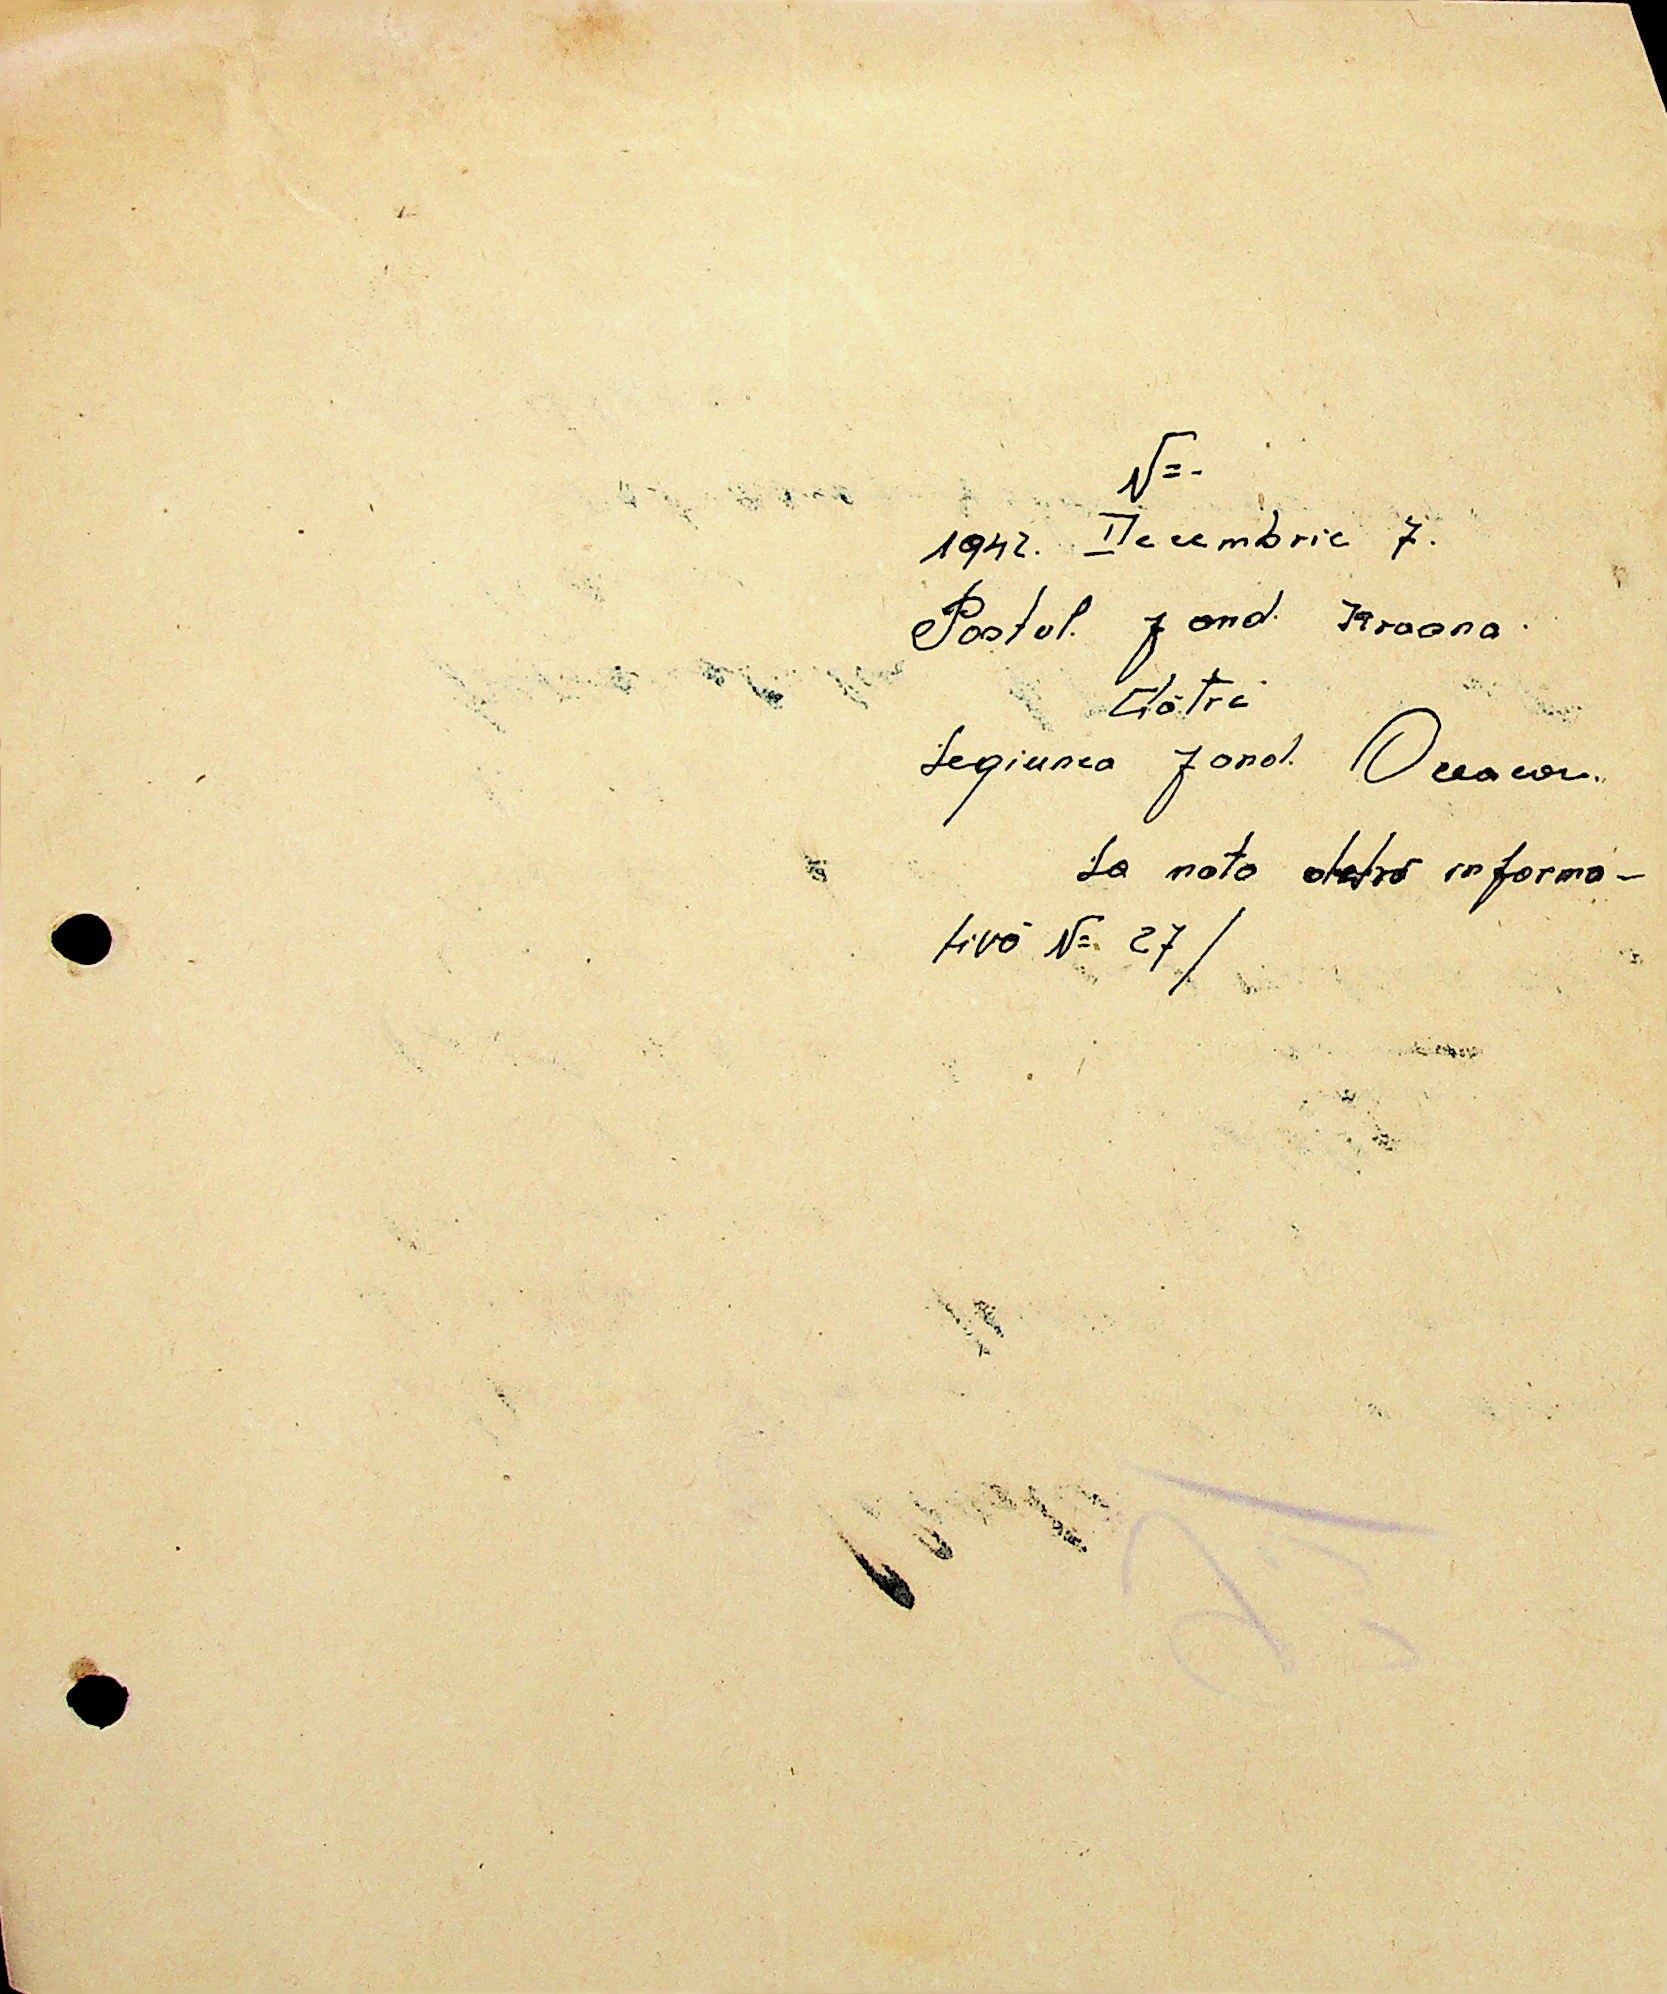 N=-
1942. Decembrie 7.
Postul jand. Krasna.
Cătrē
Legiunea jand. Oceacov.
La nota informa-
tivă N=. 27/